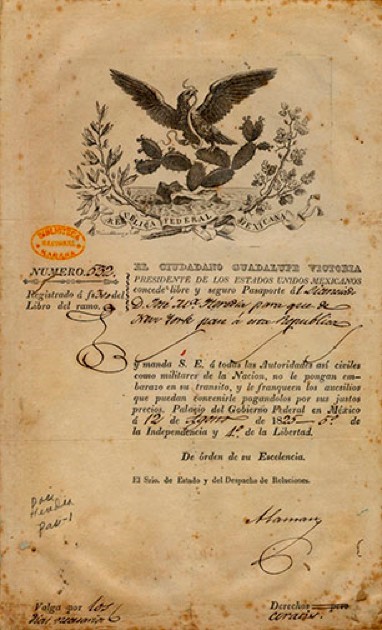 REPUBLICA FEDERAL MEXICANA
BIBLIOTECA
NACIONAL
HABANA
NUMERO. 532.
Registrado á del
Libro del ramo.
EL CIUDADANO GUADALUPE VICTORIA
PRESIDENTE DE LOS ESTADOS UNIDOS MEXICANOS
concede libre y seguro Pasaporte á
D. José Ma. Heredia para que de
New York pase á esta Republica
Y manda S. E. á todas las Autoridades asi civiles
como militares de la Nacion, no le pongan em-
barazo en su transito, y le franqueen los aucsilios
que puedan convenirle pagandolos por sus justos
precios. Palacio del Gobierno Federal en México
á 12 de Agosto de 1825 — 5º. de
la Independencia y 4º. de la Libertad.
De órden de su Escelencia.
El Srio. de Estado y del Despacho de Relaciones.
José
Heredia
Alaman
Valga por los
dias necesarios
Derechos